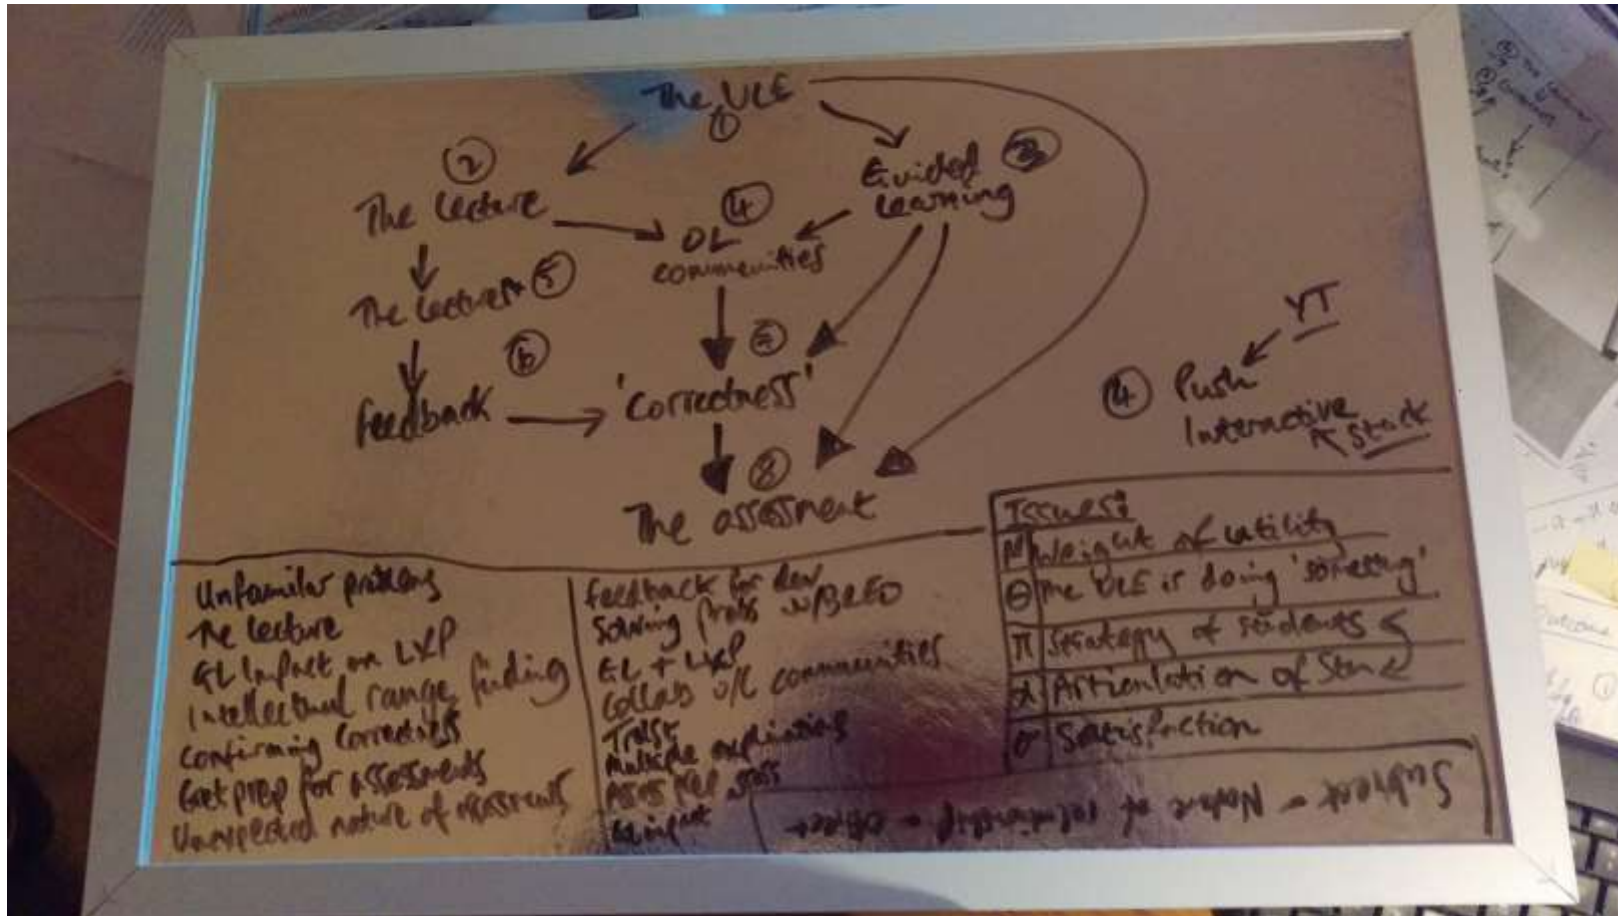 The VLE
①
②
The lecture
Guided ③
Learning
④
OL
communities
The lecturer ⑤
⑥
Feedback
⑦
'correctness'
⑧
The assessment
YT
④ Push
Interactive
Stack
Unfamiliar problems
The lecture
GL impact on LXP
Intellectual range finding
Confirming correctness
Get prep for assessments
Unexpected nature of assessments
Feedback for dev
Solving probs w/BREO
GL + LXP
Collab O/L communities
Trust
Multiple explinations
Issues:
Weight of utility
Θ The VLE is doing 'something'.
π Strategy of students
α Articulation of
σ Satisfaction
Subject - Nature of relationship - Object